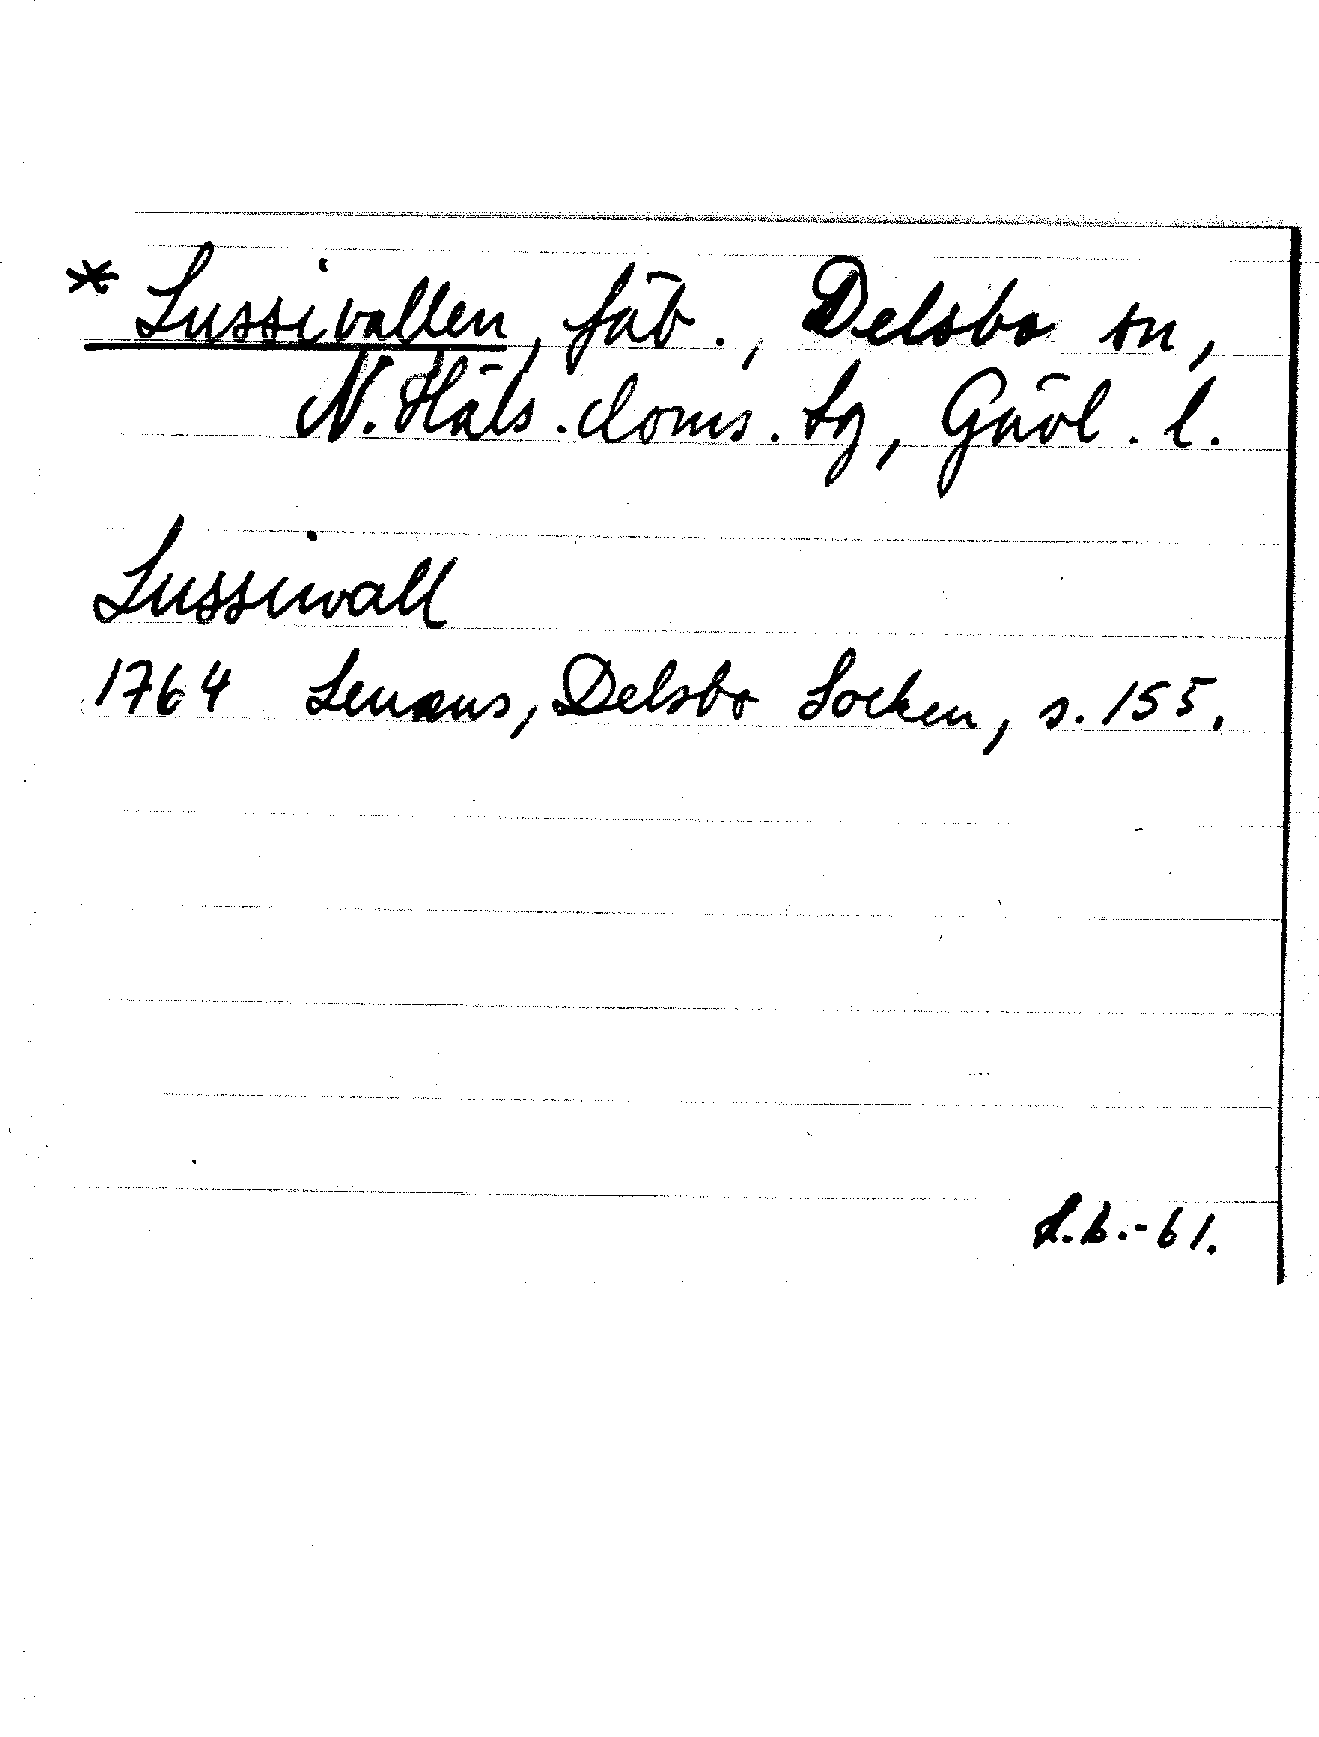 * Lussivallen, fäb., Delsbo sn,
N. Häls. doms. tg, Gävl. l.
Lussiwall
1764 Lenæus, Delsbo Socken, s. 155.
L.B.-61.